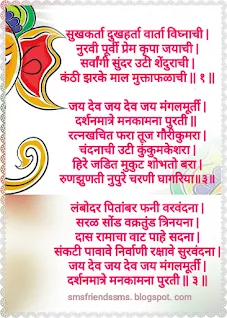 सुखकर्ता दुखहर्ता वार्ता विघ्नाची |
नुरवी पूर्वी प्रेम कृपा जयाची |
सर्वांगी सुंदर उटी शेंदुराची |
कंठी झरके माल मुक्ताफळाची || १ ||
जय देव जय देव जय मंगलमूर्ती |
दर्शनमात्रे मनकामना पुरती ||
रत्नखचित फरा तूज गौरीकुमरा |
चंदनाची उटी कुंकुमकेशरा |
हिरे जडित मुकुट शोभतो बरा |
रुणझुणती नुपुरे चरणी घागरिया||३||
लंबोदर पितांबर फनी वरवंदना |
सरळ सोंड वक्रतुंड त्रिनयना |
दास रामाचा वाट पाहे सदना |
संकटी पावावे निर्वाणी रक्षावे सुरवंदना |
जय देव जय देव जय मंगलमूर्ती |
दर्शनमात्रे मनकामना पुरती || ३ ||
smsfriendssms. blogspot. com